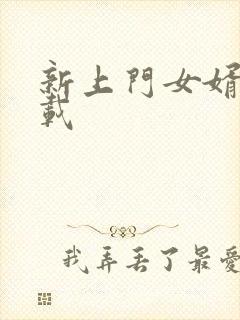 新上門女婿
載
我弄丟了最愛